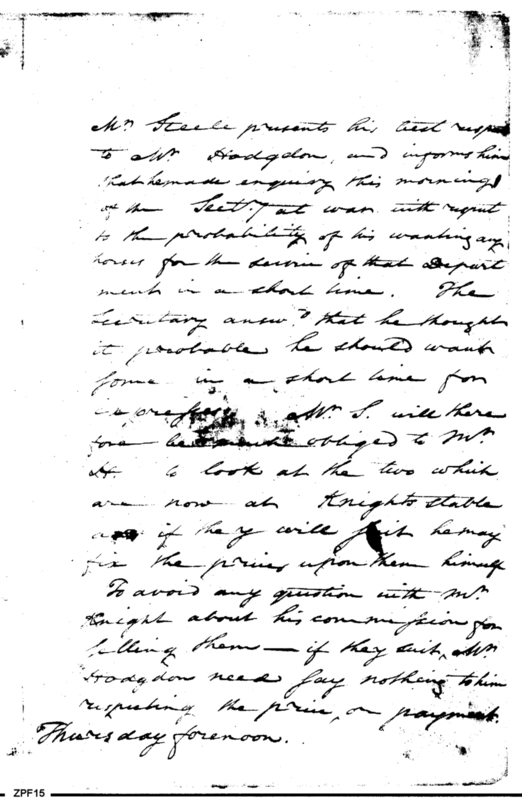 Mr. Steele presents his best respe
to Mr. Hodgdon, and informs him
that he made enquiry this morning
of the Sect.y at war with respect
to the probability of his wanting any
horses for the service of that Depart
ment in a short time. The
Secretary answ.d that he thought
it probable he should want
some in a short time for
expresses Mr. S. will there
fore be obliged to Mr.
H. to look at the two which
are now at Knights stable
if they will suit he may
fix the prices upon them himself
To avoid any question with Mr.
Knight about his commission for
selling them — if they suit, Mr.
Hodgdon need say nothing to him
respecting the price, or payment.
Thursday forenoon.
ZPF15